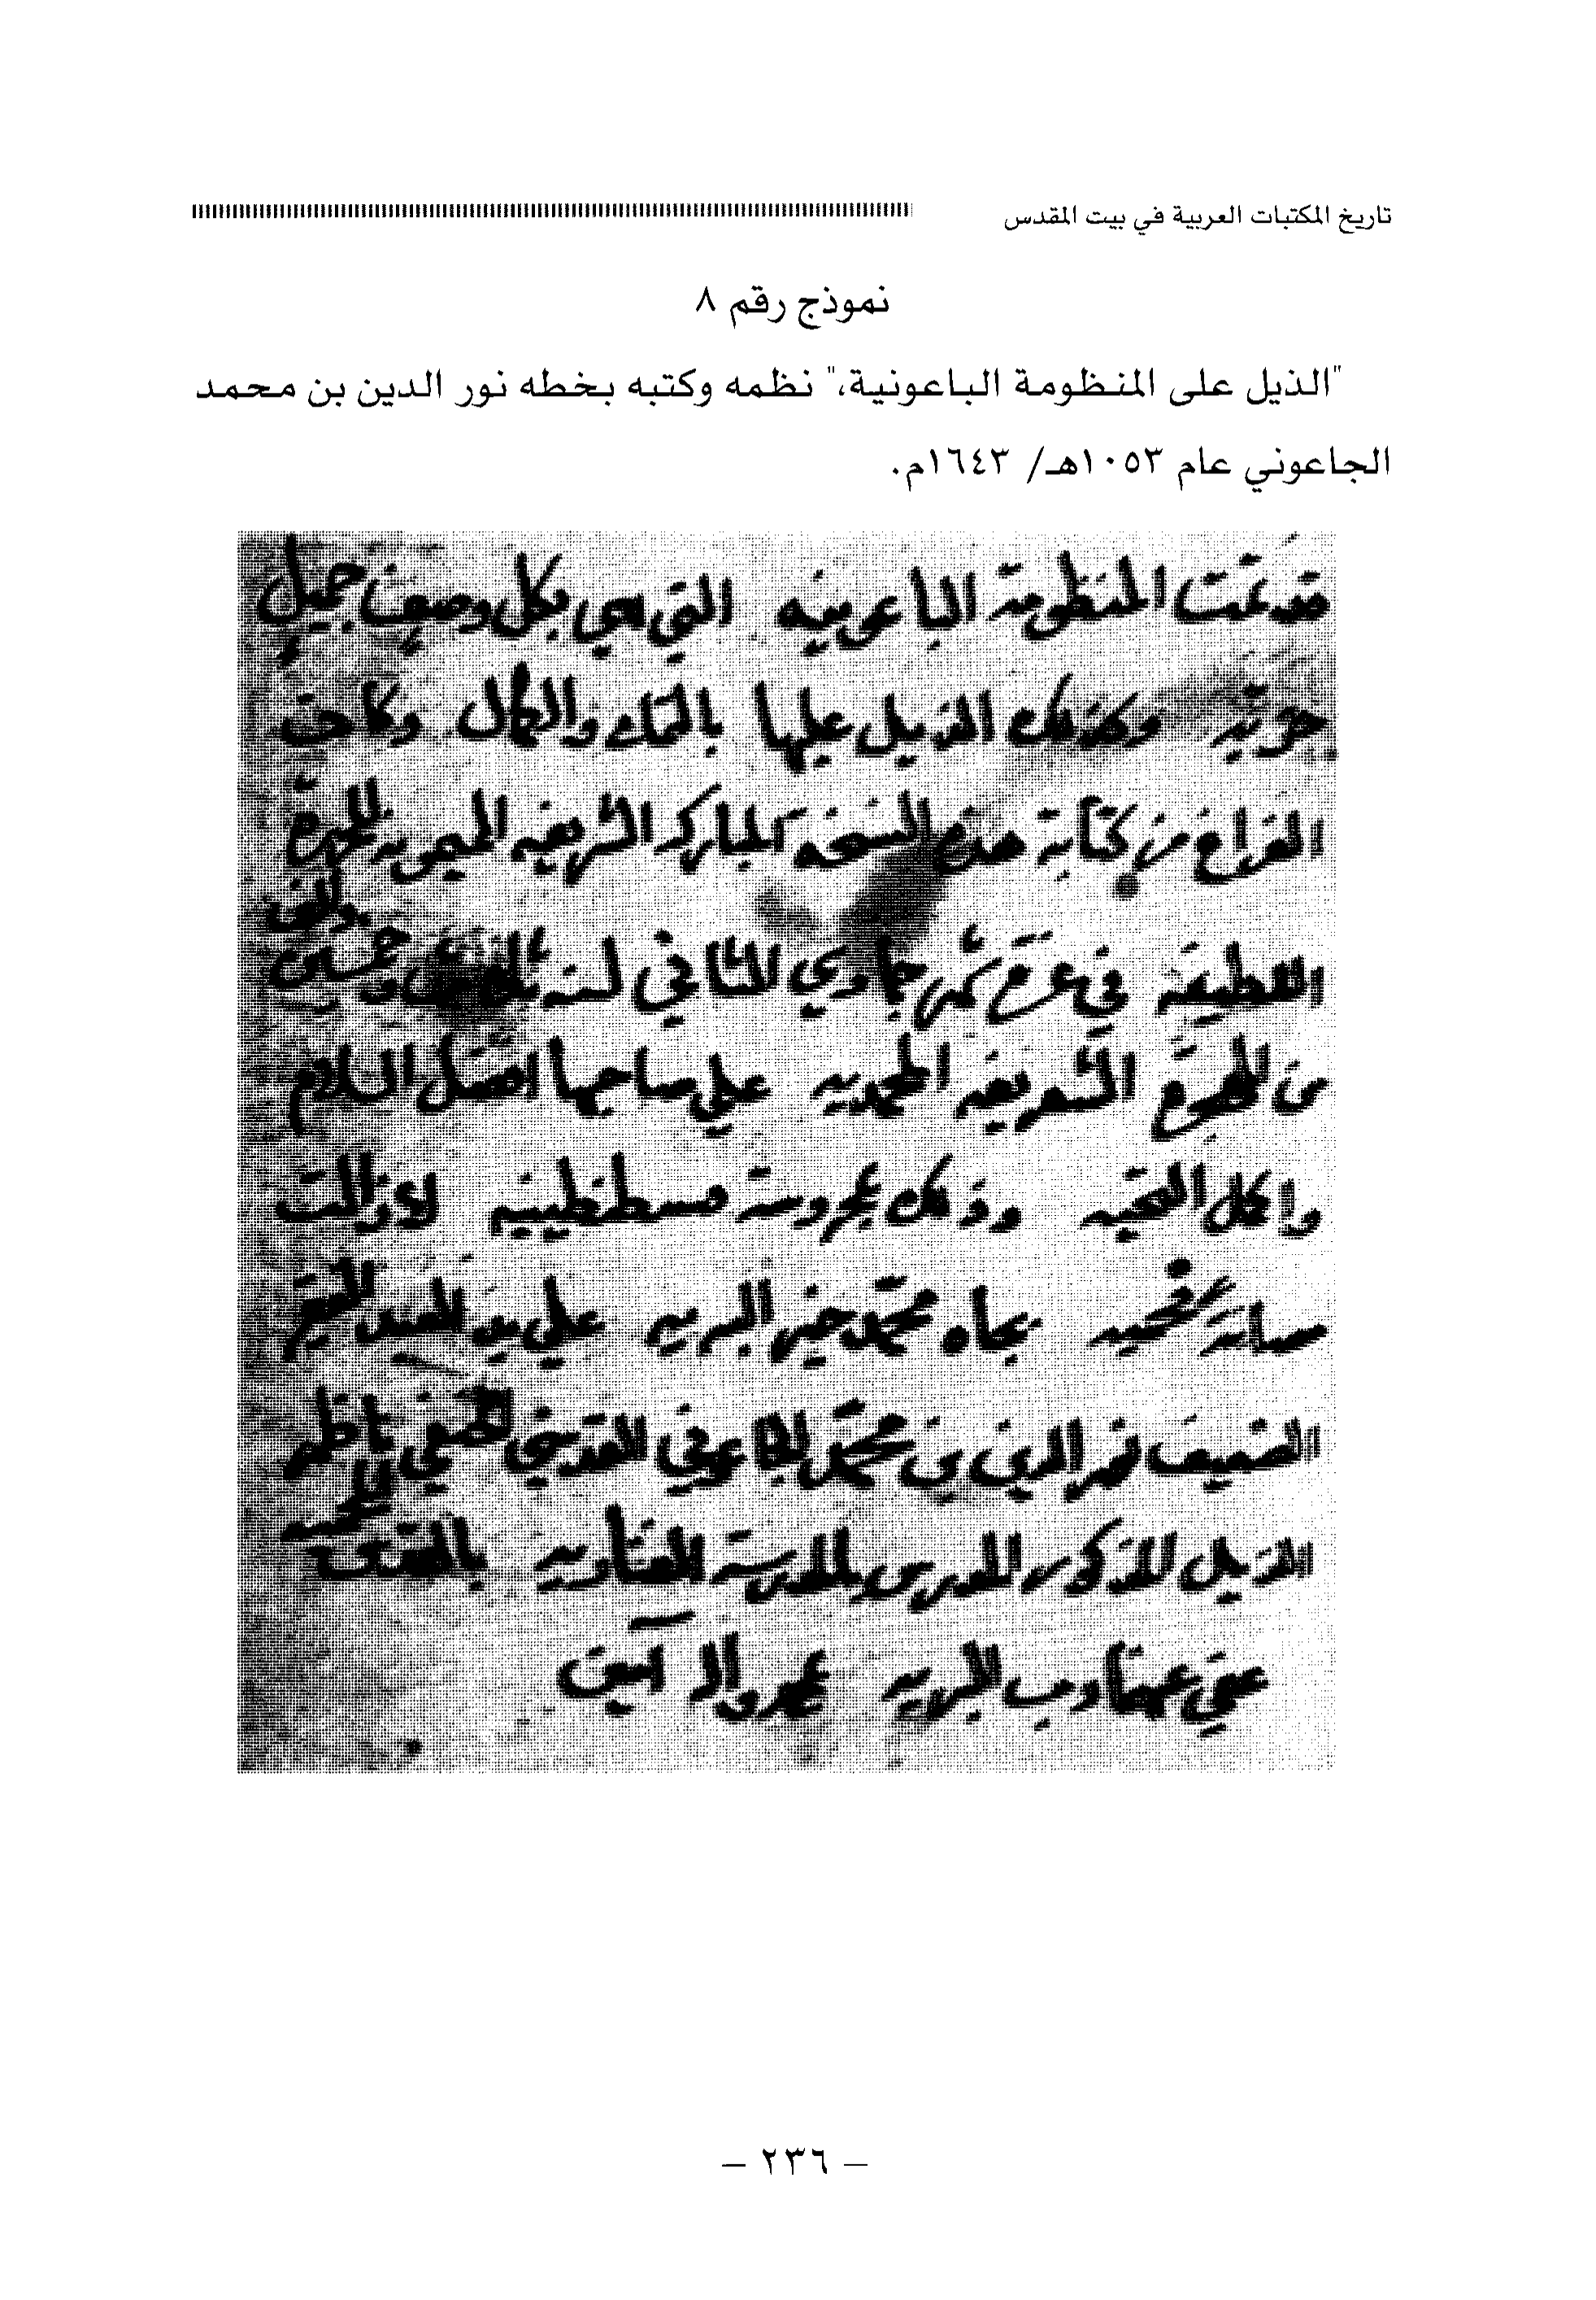 تاريخ المكتبات العربية في بيت المقدس
نموذج رقم ٨
"الذيل على المنظومة الباعونية،" نظمه وكتبه بخطه نور الدين بن محمد
الجاعوني عام ١٠٥٣هـ/ ١٦٤٣م.
قد تمت المنظومة الباعونيه التي هي بكل وصف جميل
حريه وكذلك الذيل عليها بالتمام والكمال وكان
الفراغ من كتابة هذه النسخه المباركه الشريفيه
اللطيفيه في شهر جمادي الثاني لسنه ثلاث وخمسين والف
من الهجرة الشريفه المحمديه علي صاحبها افضل السلام
واكمل التحيه وذلك بمحروسة قسطنطينيه لا زالت
محميه بجاه محمد خير البريه علي يد العبد الفقير
الضعيف نور الدين بن محمد الجاعوني المقدسي الحنفي ناظم
الذيل المذكور المدرس بالمدرسة بالقدس
عفي عنهما رب البريه بمحمد واله آمين
– ٢٣٦ –